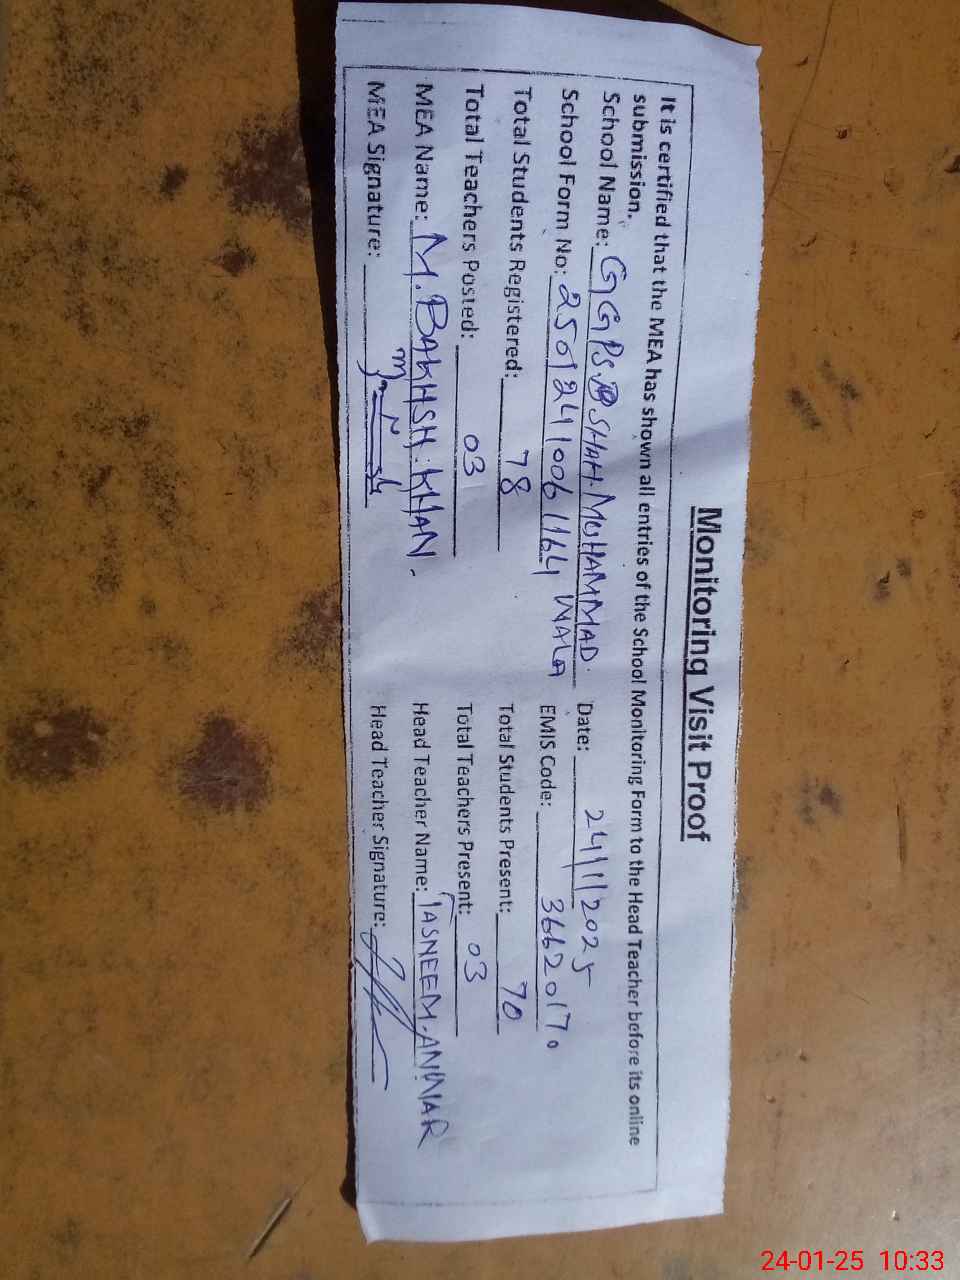 Monitoring Visit Proof
It is certified that the MEA has shown all entries of the School Monitoring Form to the Head Teacher before its online
submission.
School Name: GGPS. SHAH MOHAMMAD. WALA Date: 24/1/2025
School Form No: 25012410061164 EMIS Code: 36620170
Total Students Registered: 78 Total Students Present: 70
Total Teachers Posted: 03 Total Teachers Present: 03
MEA Name: M. BAKHSH. KHAN. Head Teacher Name: TASNEEM. ANWAR
MEA Signature: Head Teacher Signature:
24-01-25 10:33